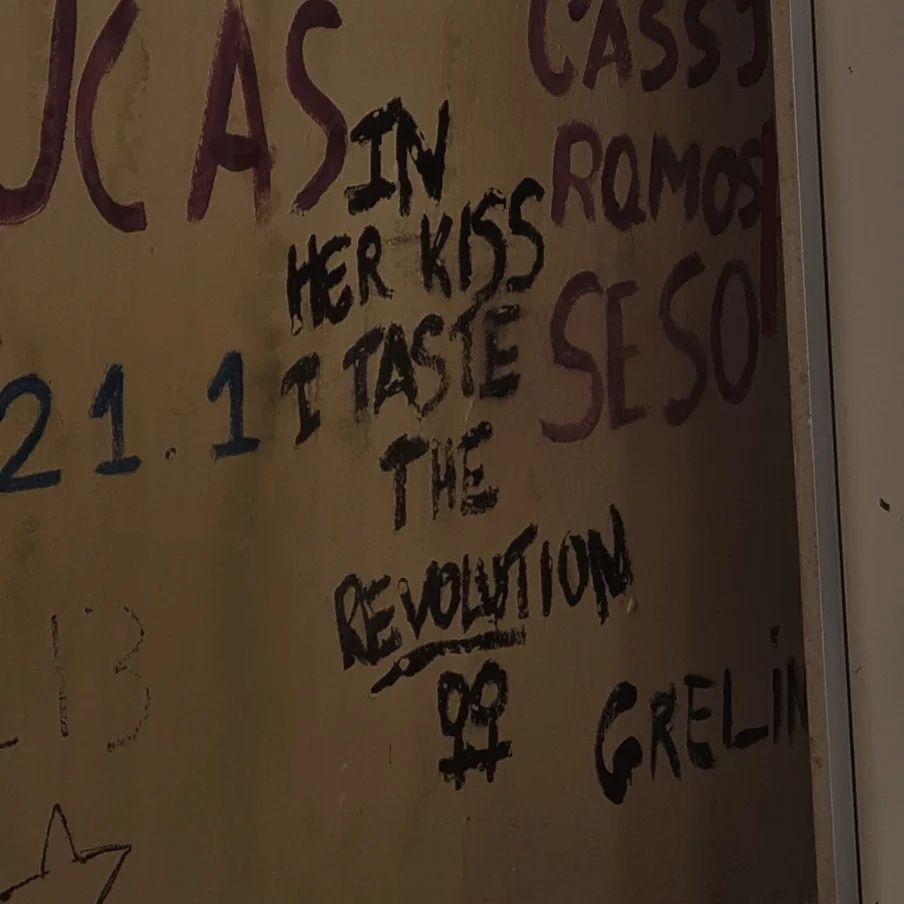 UCAS
CASSJ
RAMOS
SESO
IN
HER KISS
I TASTE
THE
REVOLUTION
21.1
13
GRELIN